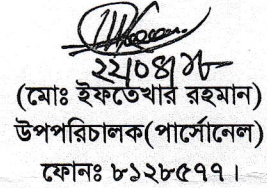 ২২/০৪/১৮
(মোঃ ইফতেখার রহমান)
উপপরিচালক(পার্সোনেল)
ফোনঃ ৮১২৮৫৭৭।